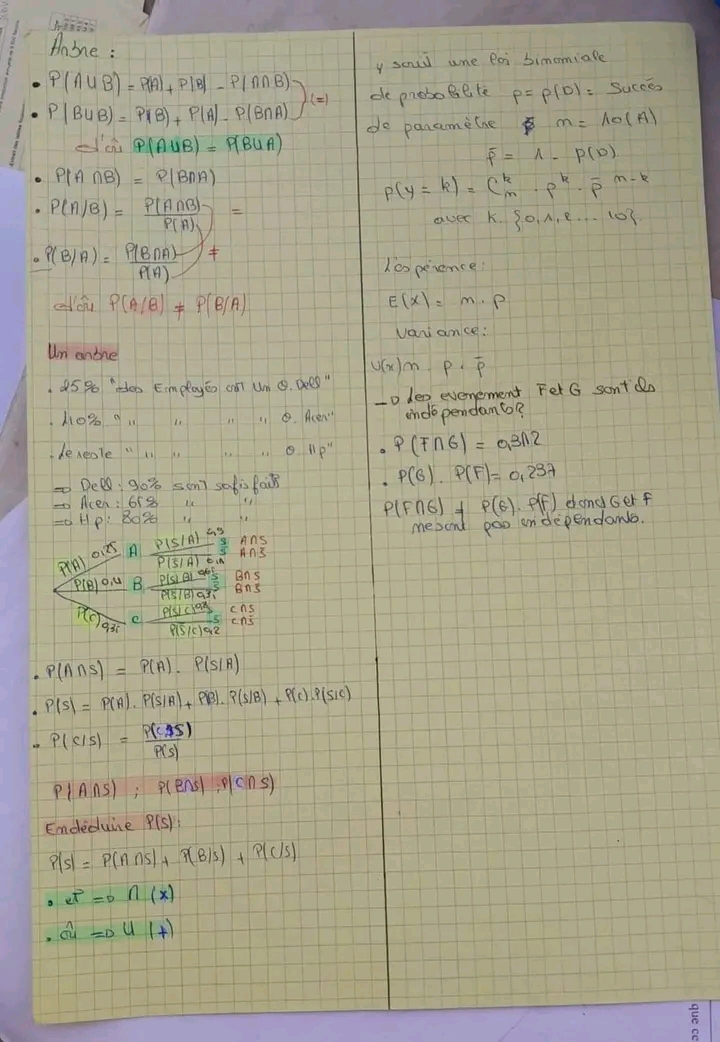 Arbre :
• P(A∪B) = P(A) + P(B) - P(A∩B)
(=)
• P(B∪B) = P(B) + P(A) - P(B∩A)
d'où P(A∪B) = P(B∪A)
• P(A∩B) = P(B∩A)
• P(A/B) = P(A∩B) / P(A) =
• P(B/A) = P(B∩A) / P(A) ≠
d'où P(A/B) ≠ P(B/A)
Un arbre
• 25% "des Employés ont un O. Dell"
• 40% " " " " " O. Acer"
• Le reste " " " " " O Hp"
=> Dell : 90% sont satisfait
=> Acer : 65% " "
=> Hp : 80% " "
P(A) 0,25 A P(S/A) 0,9 S A∩S
P(S̄/A) 0,1 S̄ A∩S̄
P(B) 0,4 B P(S/B) 0,65 S B∩S
P(S̄/B) 0,35 S̄ B∩S̄
P(C) 0,35 C P(S/C) 0,8 S C∩S
P(S̄/C) 0,2 S̄ C∩S̄
• P(A∩S) = P(A) . P(S/A)
• P(S) = P(A) . P(S/A) + P(B) . P(S/B) + P(C) . P(S/C)
• P(C/S) = P(C∩S) / P(S)
P(A∩S) ; P(B∩S) ; P(C∩S)
Endéduire P(S) :
P(S) = P(A∩S) + P(B/S) + P(C/S)
• et => ∩ (x)
• où => ∪ (+)
y suit une loi binomiale
de probabilité p = p(D) = Succés
de paramètre n = 10 (A)
p̄ = 1 - p(D)
p(y = k) = C_n^k . p^k . p̄^(n-k)
avec k. {0,1,2 .... 10}
L'espérence :
E(X) = n . p
variance :
V(x) n . p . p̄
→ des evenement F et G sont ils
indépendants ?
• P(F∩G) = 0,312
• P(G) . P(F) = 0,237
P(F∩G) ≠ P(G) . P(F) dond G et F
ne sont pas indépendants.
que ce